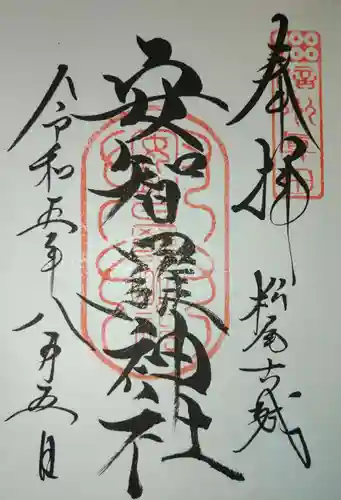 奉拝
松尾古城
安智羅神社
令和五年八月五日